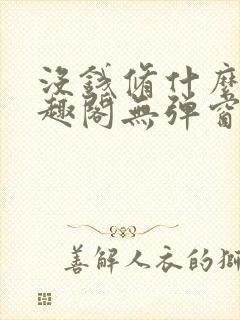 沒錢脩什麼
趣閣無彈窗
善解人衣的獅